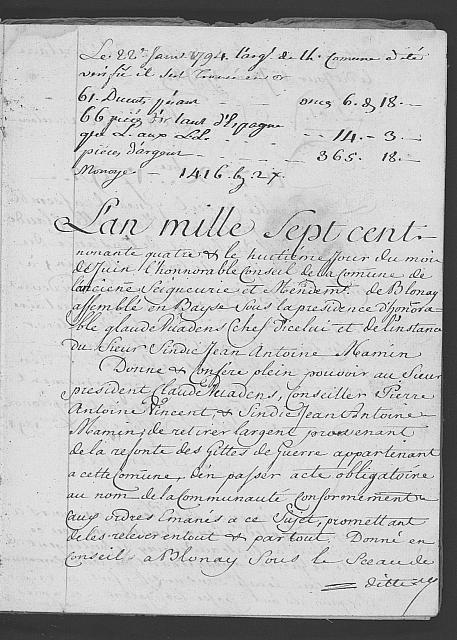 Le 22e Janv 1794. l'arg.t de lh. Comune a été
verifié il sest trouvé en or
61. Ducats pesant onces 6. d 18.
66 pièces tant d'Espagne
que L. aux L.d. 14 - 3
pièces d'argent 365. 18.
Monoye 1416. b 27.
Lan mille Sept cent
nonante quatre & le huitieme Jour du mois
de Juin l'honnorable Conseil de la Comune de
lanciene Seigneurie et Mendemt. de Blonay
assemblé en Bayse sous la presidence d'honora-
ble glaude Viadens Chef Dicelui et de l'instance
du Sieur Sindic Jean Antoine Mamin
Donne & Confére plein pouvoir au Sieur
president Claude Viadens, Conseiller Pierre
Antoine Vincent, & Sindic Jean Antoine
Mamin, de retirer largent provenant
de la refonte des Gittes de Guerre appartenant
a cette Comune, d'en passer acte obligatoire
au nom de la Communauté conformement
aux ordres Emanés a ce Sujet, promettant
de les relever en tout & par tout. Donné en
Conseil a Blonay Sous le Sceau de
ditte